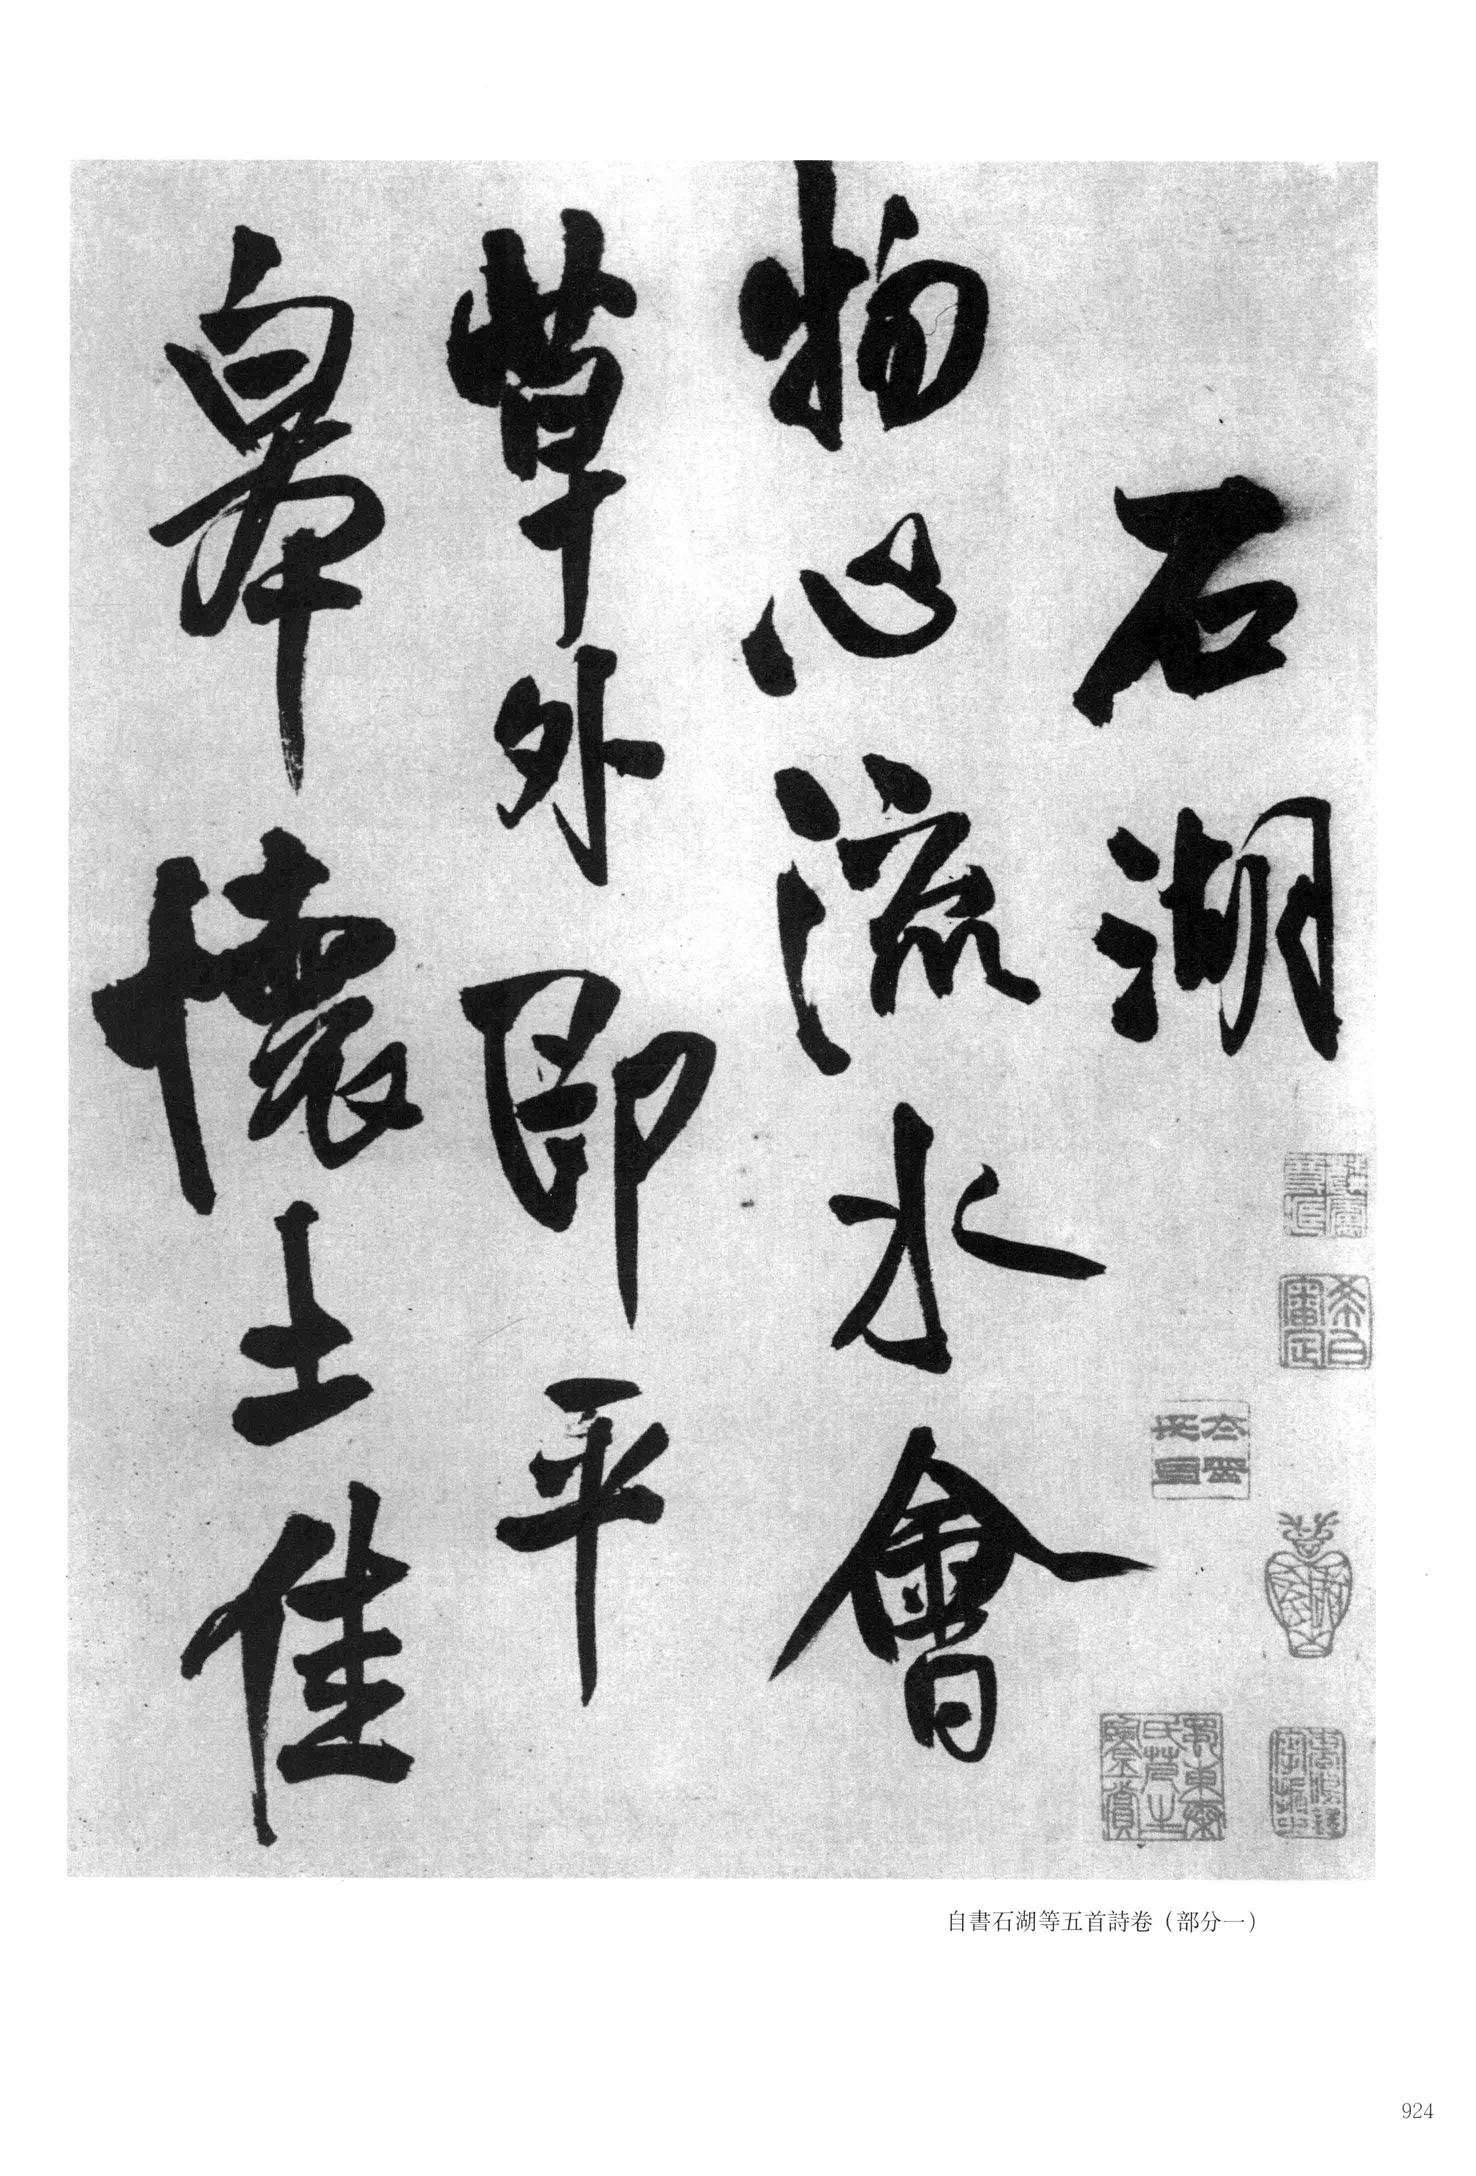 石湖
物心流水會
草外即平
皋懷土佳
希白審定
自書石湖等五首詩卷（部分一）
924